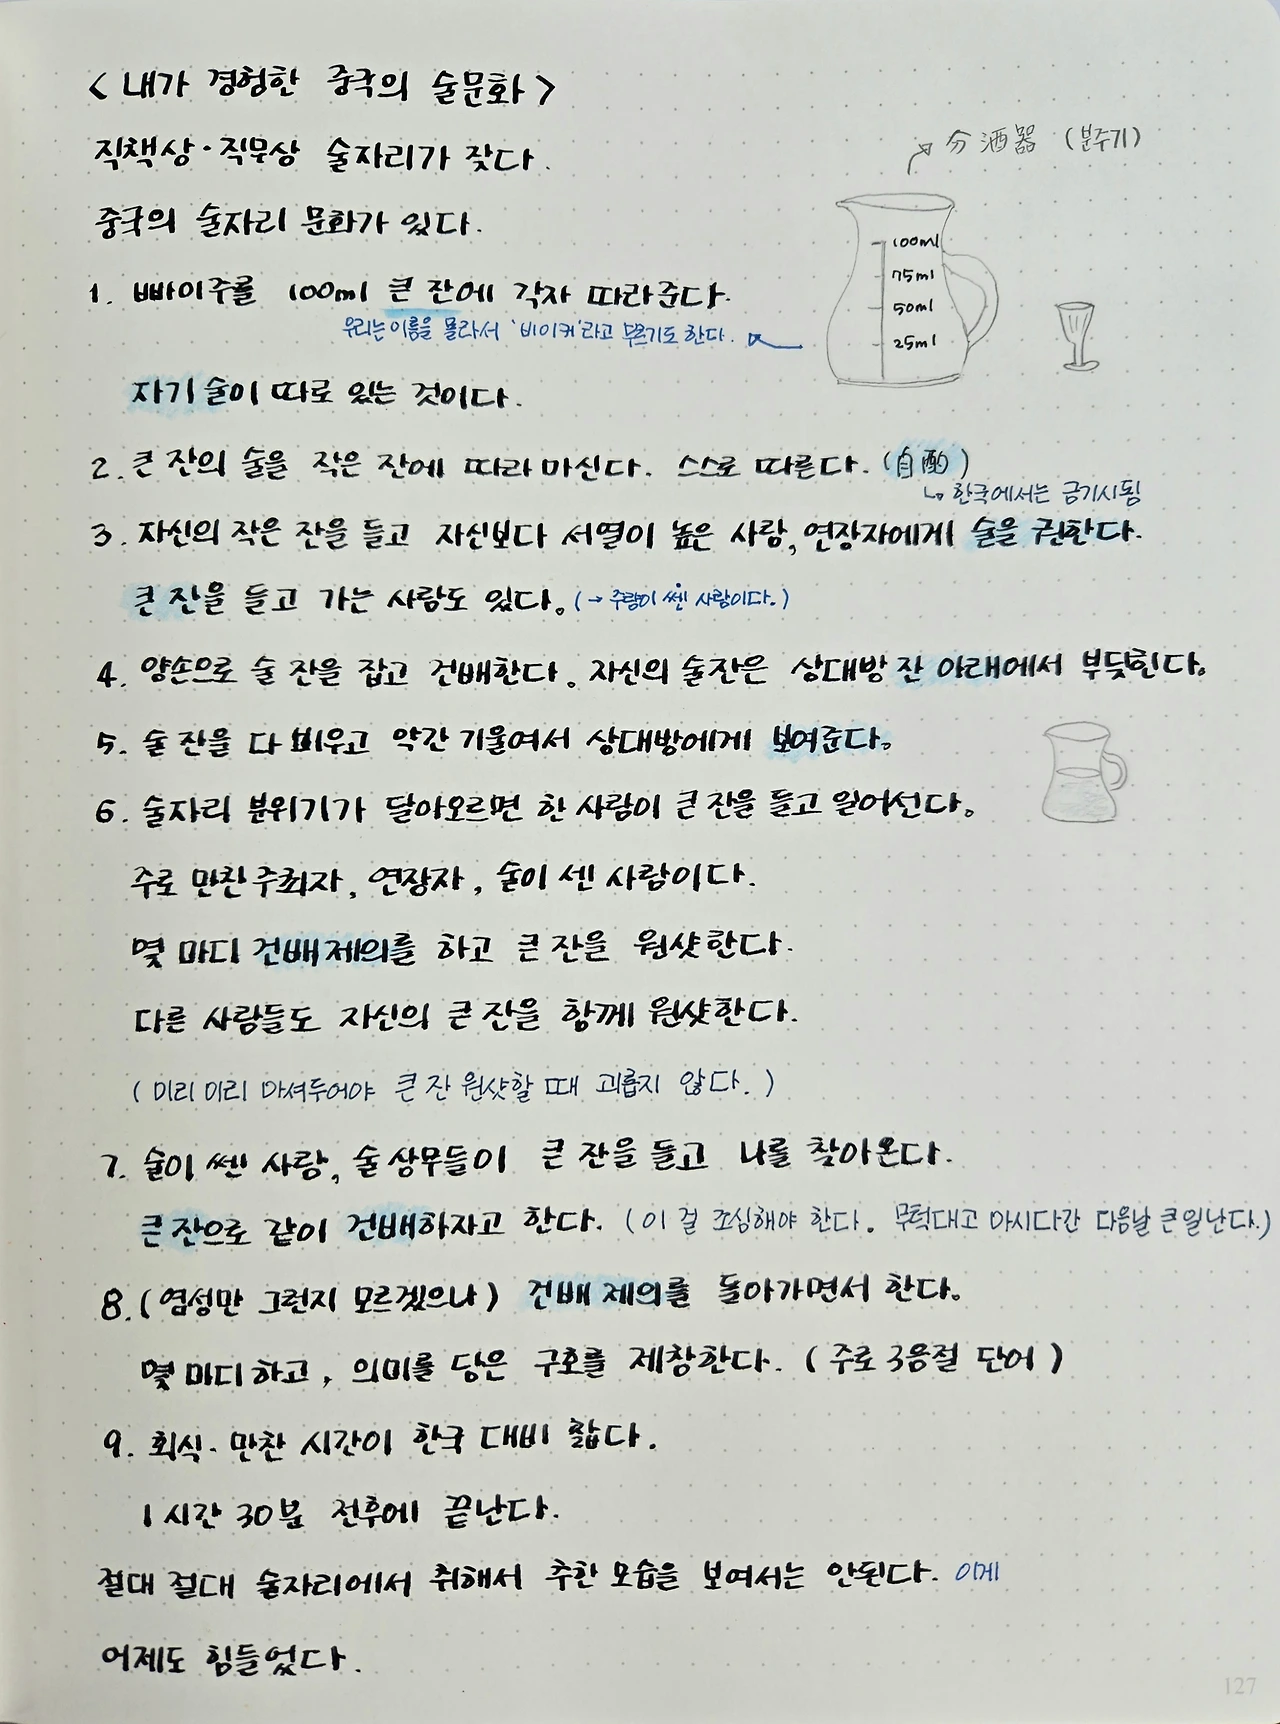 < 내가 경험한 중국의 술문화 >
직책상·직무상 술자리가 잦다.
分酒器 (분주기)
중국의 술자리 문화가 있다.
1. 빠이주를 100ml 큰 잔에 각자 따라준다.
우리는 이름을 몰라서 '비이커'라고 부르기도 한다.
100ml
75ml
50ml
25ml
자기 술이 따로 있는 것이다.
2. 큰 잔의 술을 작은 잔에 따라 마신다. 스스로 따른다. (自酌)
↳ 한국에서는 금기시됨
3. 자신의 작은 잔을 들고 자신보다 서열이 높은 사람, 연장자에게 술을 권한다.
큰 잔을 들고 가는 사람도 있다. (→ 주량이 쎈 사람이다.)
4. 양손으로 술 잔을 잡고 건배한다. 자신의 술잔은 상대방 잔 아래에서 부딪힌다.
5. 술 잔을 다 비우고 약간 기울여서 상대방에게 보여준다.
6. 술자리 분위기가 달아오르면 한 사람이 큰 잔을 들고 일어선다.
주로 만찬 주최자, 연장자, 술이 센 사람이다.
몇 마디 건배제의를 하고 큰 잔을 원샷한다.
다른 사람들도 자신의 큰 잔을 함께 원샷한다.
( 미리 미리 마셔두어야 큰 잔 원샷할 때 괴롭지 않다. )
7. 술이 쎈 사람, 술 상무들이 큰 잔을 들고 나를 찾아온다.
큰 잔으로 같이 건배하자고 한다. ( 이 걸 조심해야 한다. 무턱대고 마시다간 다음날 큰일난다.)
8. ( 염성만 그런지 모르겠으나 ) 건배 제의를 돌아가면서 한다.
몇 마디 하고, 의미를 담은 구호를 제창한다. ( 주로 3음절 단어 )
9. 회식·만찬 시간이 한국 대비 짧다.
1시간 30분 전후에 끝난다.
절대 절대 술자리에서 취해서 추한 모습을 보여서는 안된다. 이게
어제도 힘들었다.
127